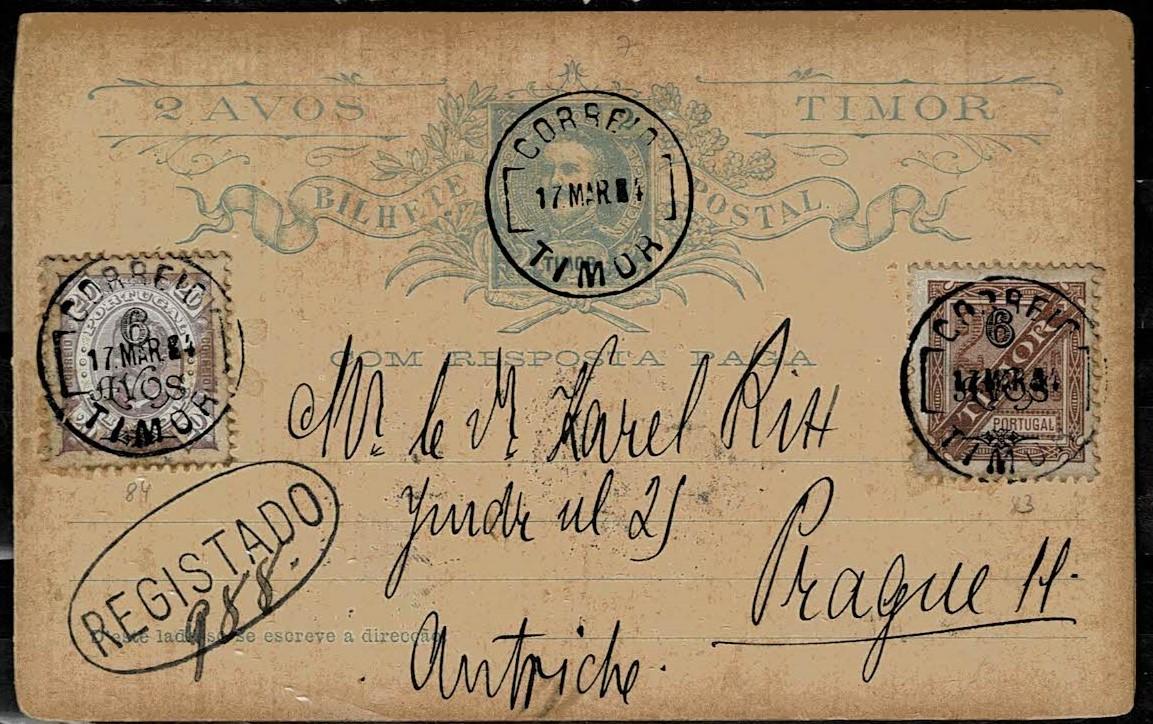 7
2 AVOS TIMOR
BILHETE POSTAL
CORREIO
17 MAR 4
TIMOR
TIMOR
CORREIO
PORTUGAL
6
17 MAR. 4
AVOS
TIMOR
CORREIO
6
17 MAR 4
AVOS
TIMOR
PORTUGAL
TIMOR
COM RESPOSTA PAGA
Mr. le Mr. Karel
ul 25
84
83
Prague II.
REGISTADO
988.
D'este lado só se escreve a direcção.
Autriche.